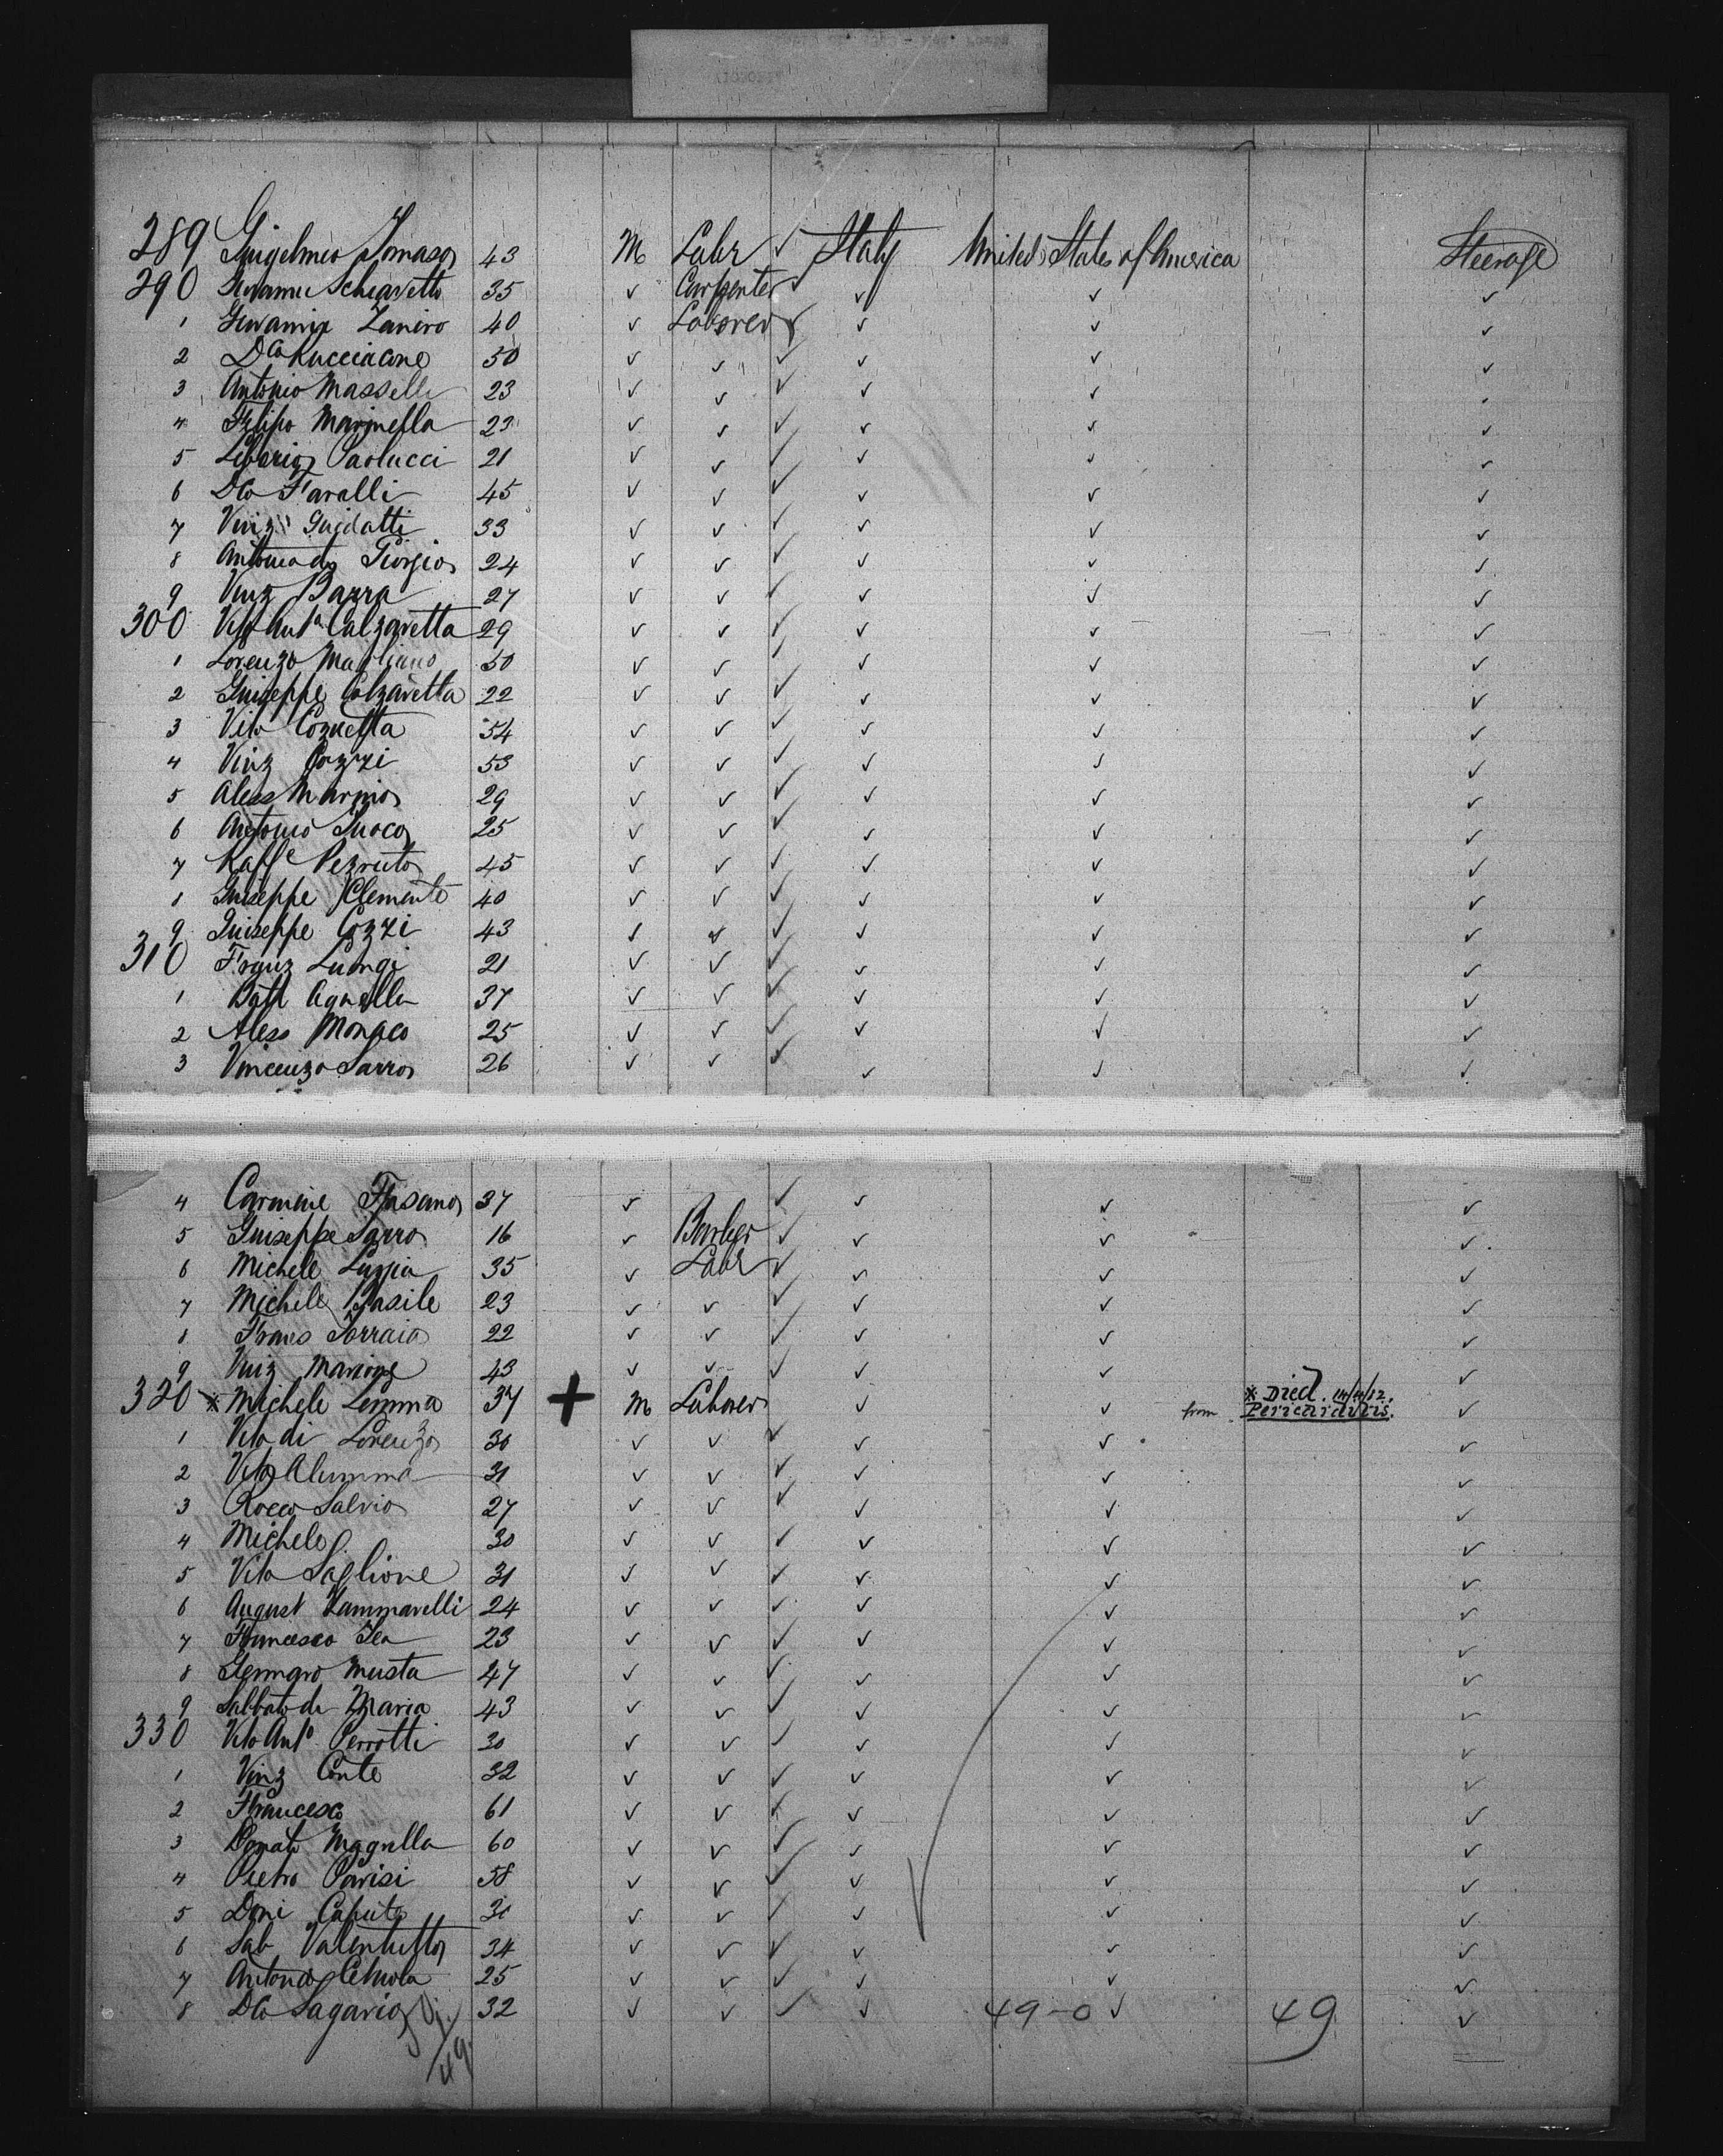 289 Guigelmo Tomaso 43 M Labr ✓ Italy United States of America Steerage
290 Schiavetto 35 ✓ Carpenter ✓ ✓ ✓ ✓
1 Zaniro 40 ✓ Laborer ✓ ✓ ✓ ✓
2 Dco 50 ✓ ✓ ✓ ✓ ✓ ✓
3 Antonio Masselli 23 ✓ ✓ ✓ ✓ ✓
4 Filipo Marinella 23 ✓ ✓ ✓ ✓ ✓ ✓
5 Liborio Paolucci 21 ✓ ✓ ✓ ✓ ✓ ✓
6 Dco Faralli 45 ✓ ✓ ✓ ✓ ✓ ✓
7 Vinz Guidatti 33 ✓ ✓ ✓ ✓ ✓ ✓
8 Giorgio 24 ✓ ✓ ✓ ✓ ✓ ✓
9 Vinz Bazra 27 ✓ ✓ ✓ ✓ ✓ ✓
300 Vito Anto Calzaretta 29 ✓ ✓ ✓ ✓ ✓ ✓
1 Lorenzo Magliano 50 ✓ ✓ ✓ ✓ ✓ ✓
2 Guiseppe Calzaretta 22 ✓ ✓ ✓ ✓ ✓ ✓
3 Vito Cozuetta 54 ✓ ✓ ✓ ✓ ✓ ✓
4 Vinz Cozzi 53 ✓ ✓ ✓ ✓ ✓ ✓
5 Aless Marino 29 ✓ ✓ ✓ ✓ ✓ ✓
6 Antonio Suoco 25 ✓ ✓ ✓ ✓ ✓ ✓
7 Raffe Pezruto 45 ✓ ✓ ✓ ✓ ✓ ✓
8 Guiseppe Clemente 40 ✓ ✓ ✓ ✓ ✓ ✓
9 Guiseppe Cozzi 43 ✓ ✓ ✓ ✓ ✓ ✓
310 Franz Luongi 21 ✓ ✓ ✓ ✓ ✓ ✓
1 Batt Agnella 37 ✓ ✓ ✓ ✓ ✓ ✓
2 Aless Monaco 25 ✓ ✓ ✓ ✓ ✓ ✓
3 Vincenzo Sarro 26 ✓ ✓ ✓ ✓ ✓ ✓
4 Carmine Fasano 37 ✓ ✓ ✓ ✓ ✓
5 Guiseppe Sarro 16 ✓ Barber ✓ ✓ ✓ ✓
6 Michele Luzzia 35 ✓ Labr ✓ ✓ ✓ ✓
7 Michele Basile 23 ✓ ✓ ✓ ✓ ✓ ✓
8 Frans Torraia 22 ✓ ✓ ✓ ✓ ✓ ✓
9 Vinz Marione 43 ✓ ✓ ✓ ✓ ✓ ✓
320 * Michele Lemma 37 + M Laborer ✓ ✓ from * Died 14/4/12. Pericarditis. ✓
1 Vito di Lorenzo 30 ✓ ✓ ✓ ✓ ✓ ✓
2 Vito Alumma 31 ✓ ✓ ✓ ✓ ✓ ✓
3 Rocco Salvio 27 ✓ ✓ ✓ ✓ ✓ ✓
4 Michele 30 ✓ ✓ ✓ ✓ ✓ ✓
5 Vito Saglione 31 ✓ ✓ ✓ ✓ ✓ ✓
6 August Iammarelli 24 ✓ ✓ ✓ ✓ ✓ ✓
7 Francesco 23 ✓ ✓ ✓ ✓ ✓ ✓
8 Gennaro Musta 47 ✓ ✓ ✓ ✓ ✓ ✓
9 Sabbato de Maria 43 ✓ ✓ ✓ ✓ ✓ ✓
330 Vito Anto Perrotti 30 ✓ ✓ ✓ ✓ ✓ ✓
1 Vinz Conte 32 ✓ ✓ ✓ ✓ ✓ ✓
2 Francesco 61 ✓ ✓ ✓ ✓ ✓ ✓
3 Donato Magnella 60 ✓ ✓ ✓ ✓ ✓ ✓
4 Pietro Parisi 58 ✓ ✓ ✓ ✓ ✓ ✓
5 Doni Caputo 30 ✓ ✓ ✓ ✓ ✓ ✓
6 Sab Valentutto 34 ✓ ✓ ✓ ✓ ✓ ✓
7 Antonio Cetruola 25 ✓ ✓ ✓ ✓ ✓ ✓
8 Dco Sagario 32 ✓ ✓ ✓ ✓ 49-0 ✓ 49 ✓
49